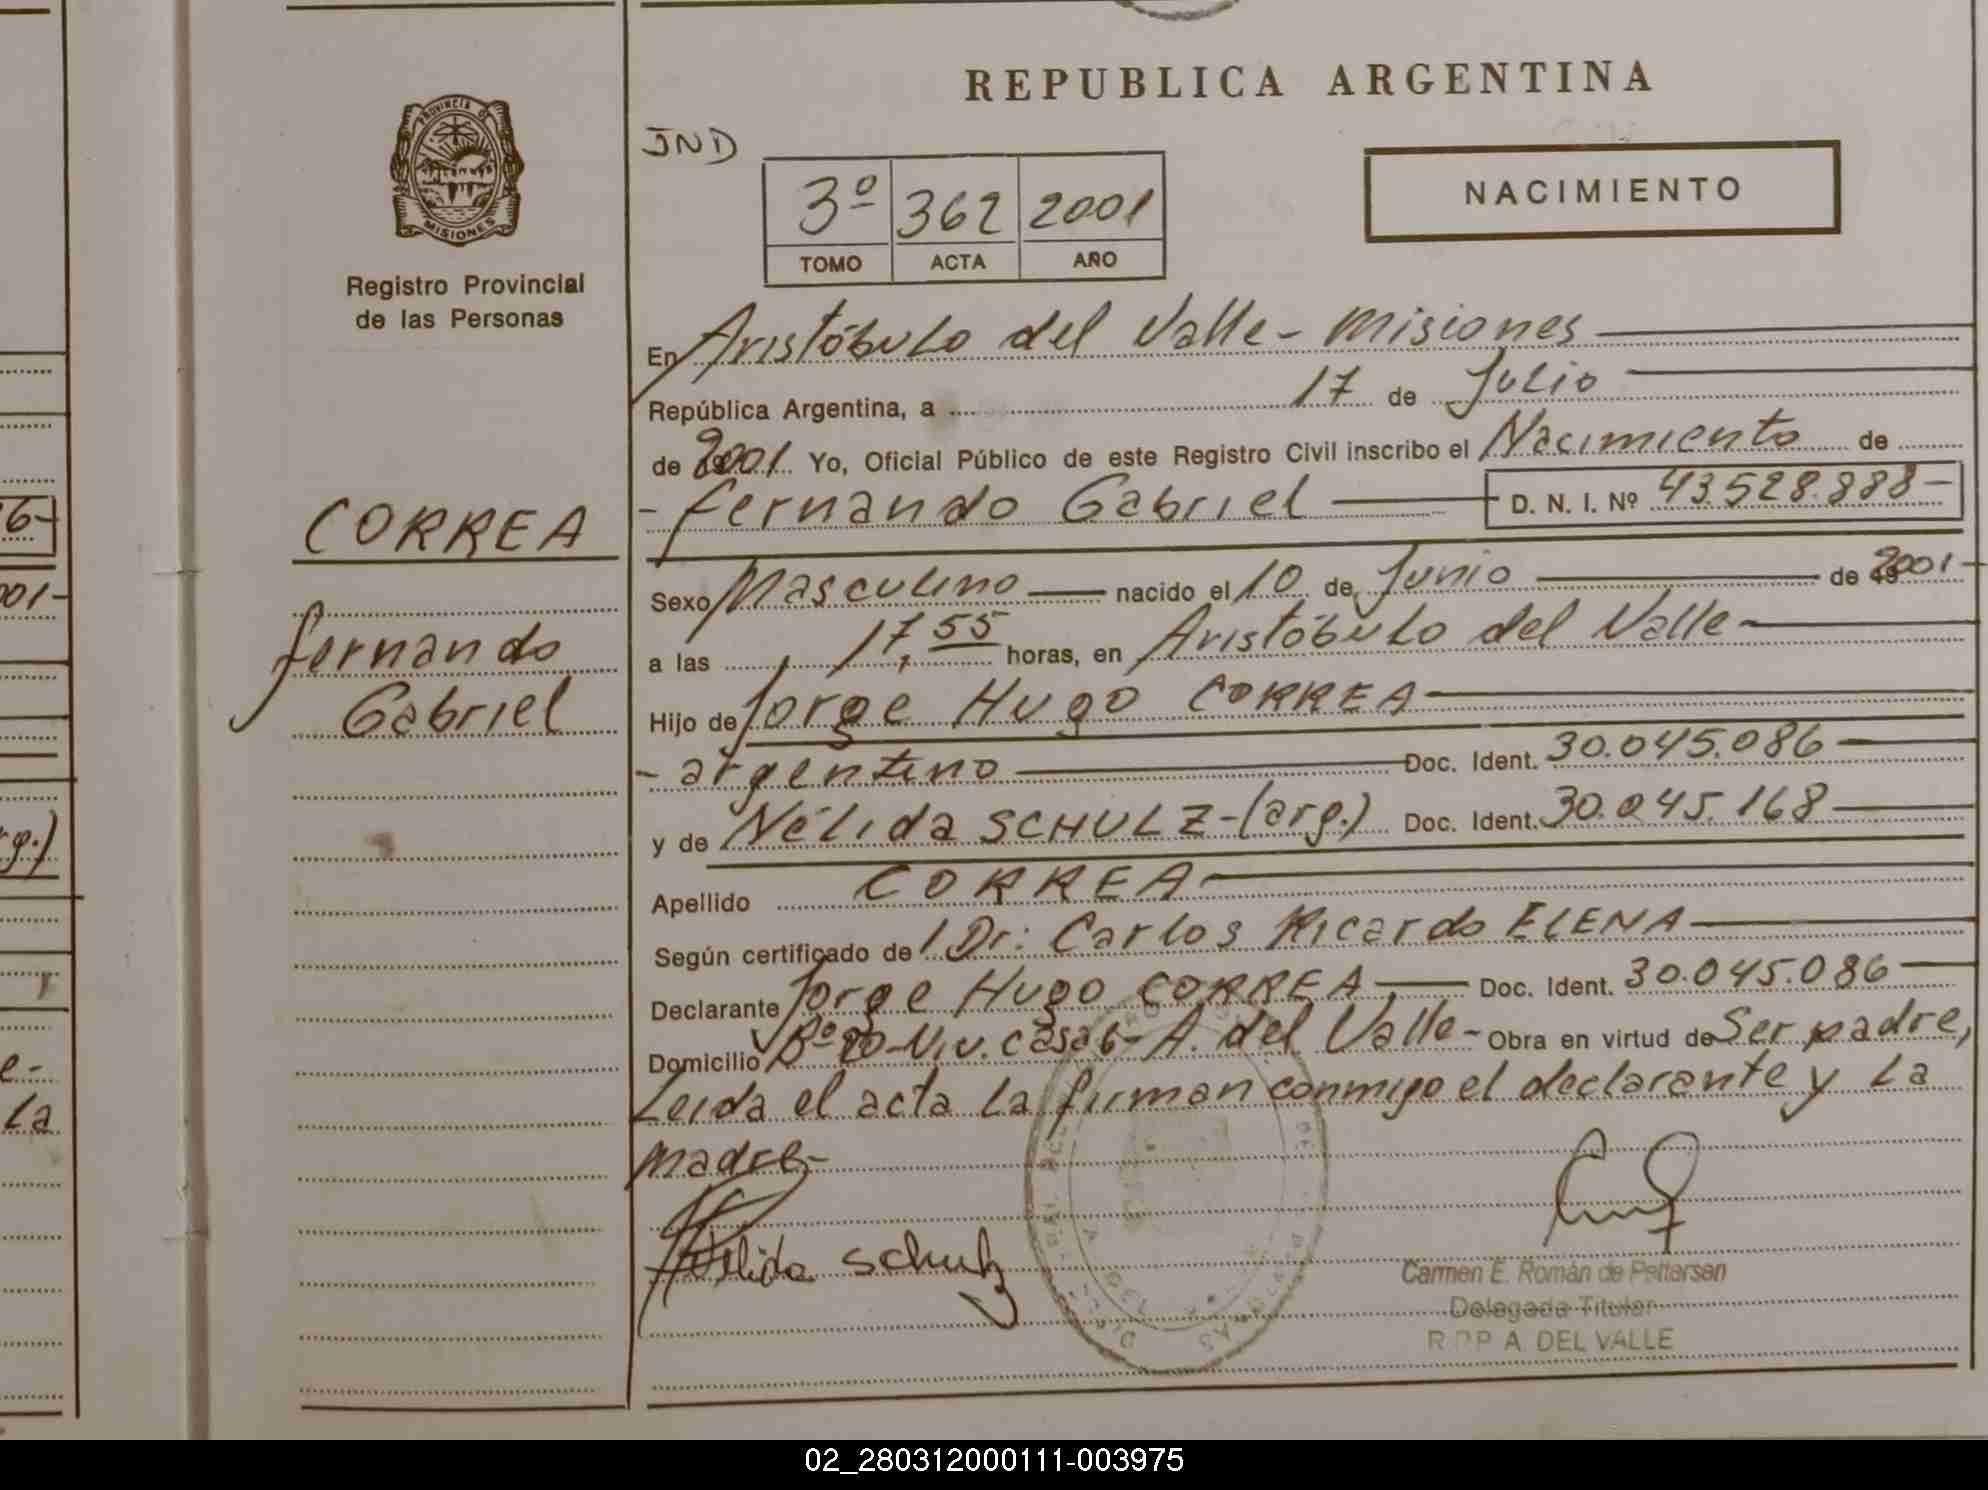 REPUBLICA ARGENTINA
PROVINCIA DE
MISIONES
Registro Provincial
de las Personas
JND
3º 362 2001
TOMO ACTA AÑO
NACIMIENTO
En Aristóbulo del Valle - Misiones
República Argentina, a 17 de Julio
de 2001 Yo, Oficial Público de este Registro Civil inscribo el Nacimiento de
- Fernando Gabriel D. N. I. Nº 43.528.888-
CORREA
Fernando
Gabriel
Sexo Masculino nacido el 10 de Junio de 2001
a las 17,55 horas, en Aristóbulo del Valle-
Hijo de Jorge Hugo CORREA
- argentino Doc. Ident. 30.045.086
y de Nélida SCHULZ-(arg.) Doc. Ident. 30.045.168
Apellido CORREA
Según certificado de Dr: Carlos Ricardo ELENA
Declarante Jorge Hugo CORREA Doc. Ident. 30.045.086
Domicilio Bº 20-Viv. Casa 6- A. del Valle- Obra en virtud de Ser padre,
Leída el acta la firman conmigo el declarante y la
madre-
Nélida Schulz
Carmen E. Román de Pettersen
Delegada Titular
R.P.P A. DEL VALLE
6-
001-
rg.)
e-
La
02_280312000111-003975